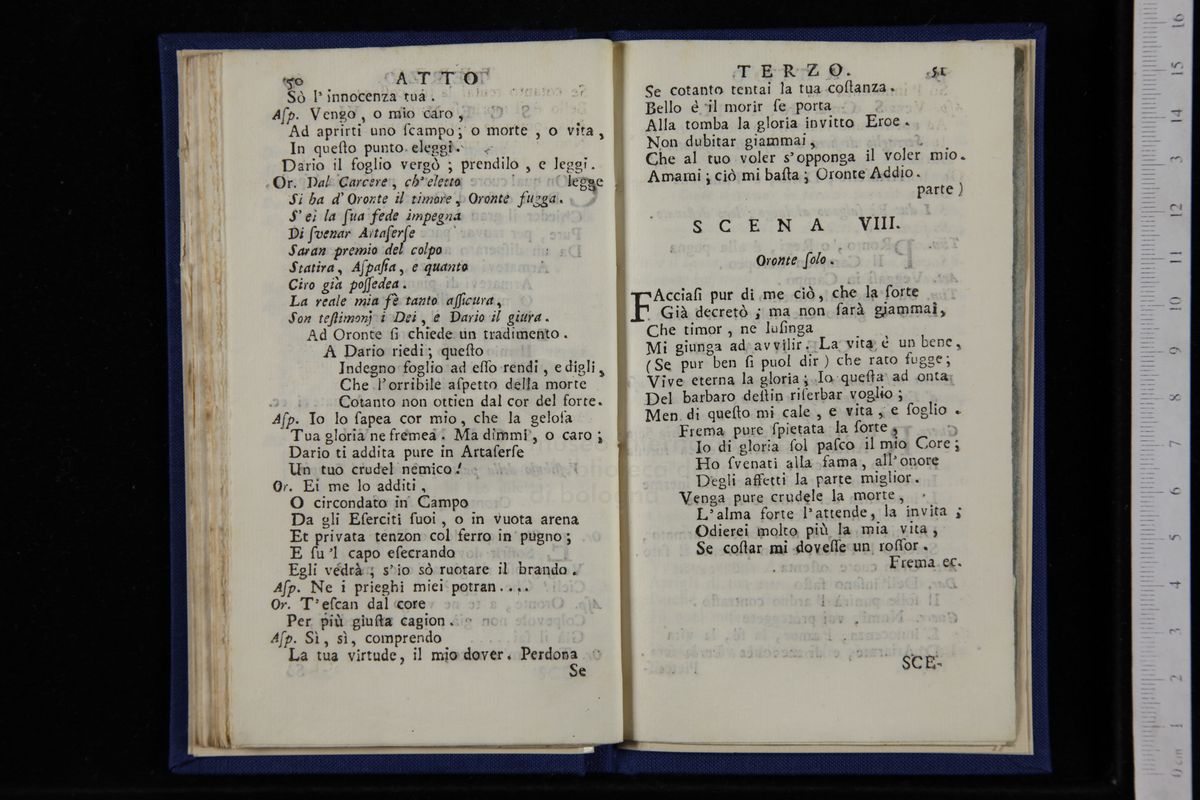 50 ATTO
Sò l'innocenza tua.
Aſp. Vengo, o mio caro,
Ad aprirti uno ſcampo; o morte, o vita,
In queſto punto eleggi.
Dario il foglio vergò; prendilo, e leggi.
Or. Dal Carcere, ch'eletto legge
Si ha d'Oronte il timore, Oronte fugga.
S'ei la ſua fede impegna
Di ſvenar Artaſerſe
Saran premio del colpo
Statira, Aſpaſia, e quanto
Ciro già poſſedea.
La reale mia fè tanto aſſicura,
Son teſtimonj i Dei, e Dario il giura.
Ad Oronte ſi chiede un tradimento.
A Dario riedi; queſto
Indegno foglio ad eſſo rendi, e digli,
Che l'orribile aſpetto della morte
Cotanto non ottien dal cor del forte.
Aſp. Io lo ſapea cor mio, che la geloſa
Tua gloria ne fremea. Ma dimmi, o caro;
Dario ti addita pure in Artaſerſe
Un tuo crudel nemico!
Or. Ei me lo additi,
O circondato in Campo
Da gli Eſerciti ſuoi, o in vuota arena
Et privata tenzon col ferro in pugno;
E ſu'l capo eſecrando
Egli vedrà; s'io sò ruotare il brando.
Aſp. Ne i prieghi miei potran....
Or. T'eſcan dal core
Per più giuſta cagion.
Aſp. Sì, sì, comprendo
La tua virtude, il mio dover. Perdona
Se
TERZO. 51
Se cotanto tentai la tua coſtanza.
Bello è il morir ſe porta
Alla tomba la gloria invitto Eroe.
Non dubitar giammai,
Che al tuo voler s'opponga il voler mio.
Amami; ciò mi baſta; Oronte Addio.
parte)
SCENA VIII.
Oronte ſolo.
FAcciaſi pur di me ciò, che la ſorte
Già decretò; ma non ſarà giammai,
Che timor, ne luſinga
Mi giunga ad avvilir. La vita è un bene,
(Se pur ben ſi puol dir) che rato fugge;
Vive eterna la gloria; Io queſta ad onta
Del barbaro deſtin riſerbar voglio;
Men di queſto mi cale, e vita, e ſoglio.
Frema pure ſpietata la ſorte,
Io di gloria ſol paſco il mio Core;
Ho ſvenati alla fama, all'onore
Degli affetti la parte miglior.
Venga pure crudele la morte,
L'alma forte l'attende, la invita;
Odierei molto più la mia vita,
Se coſtar mi doveſſe un roſſor.
Frema ec.
SCE-